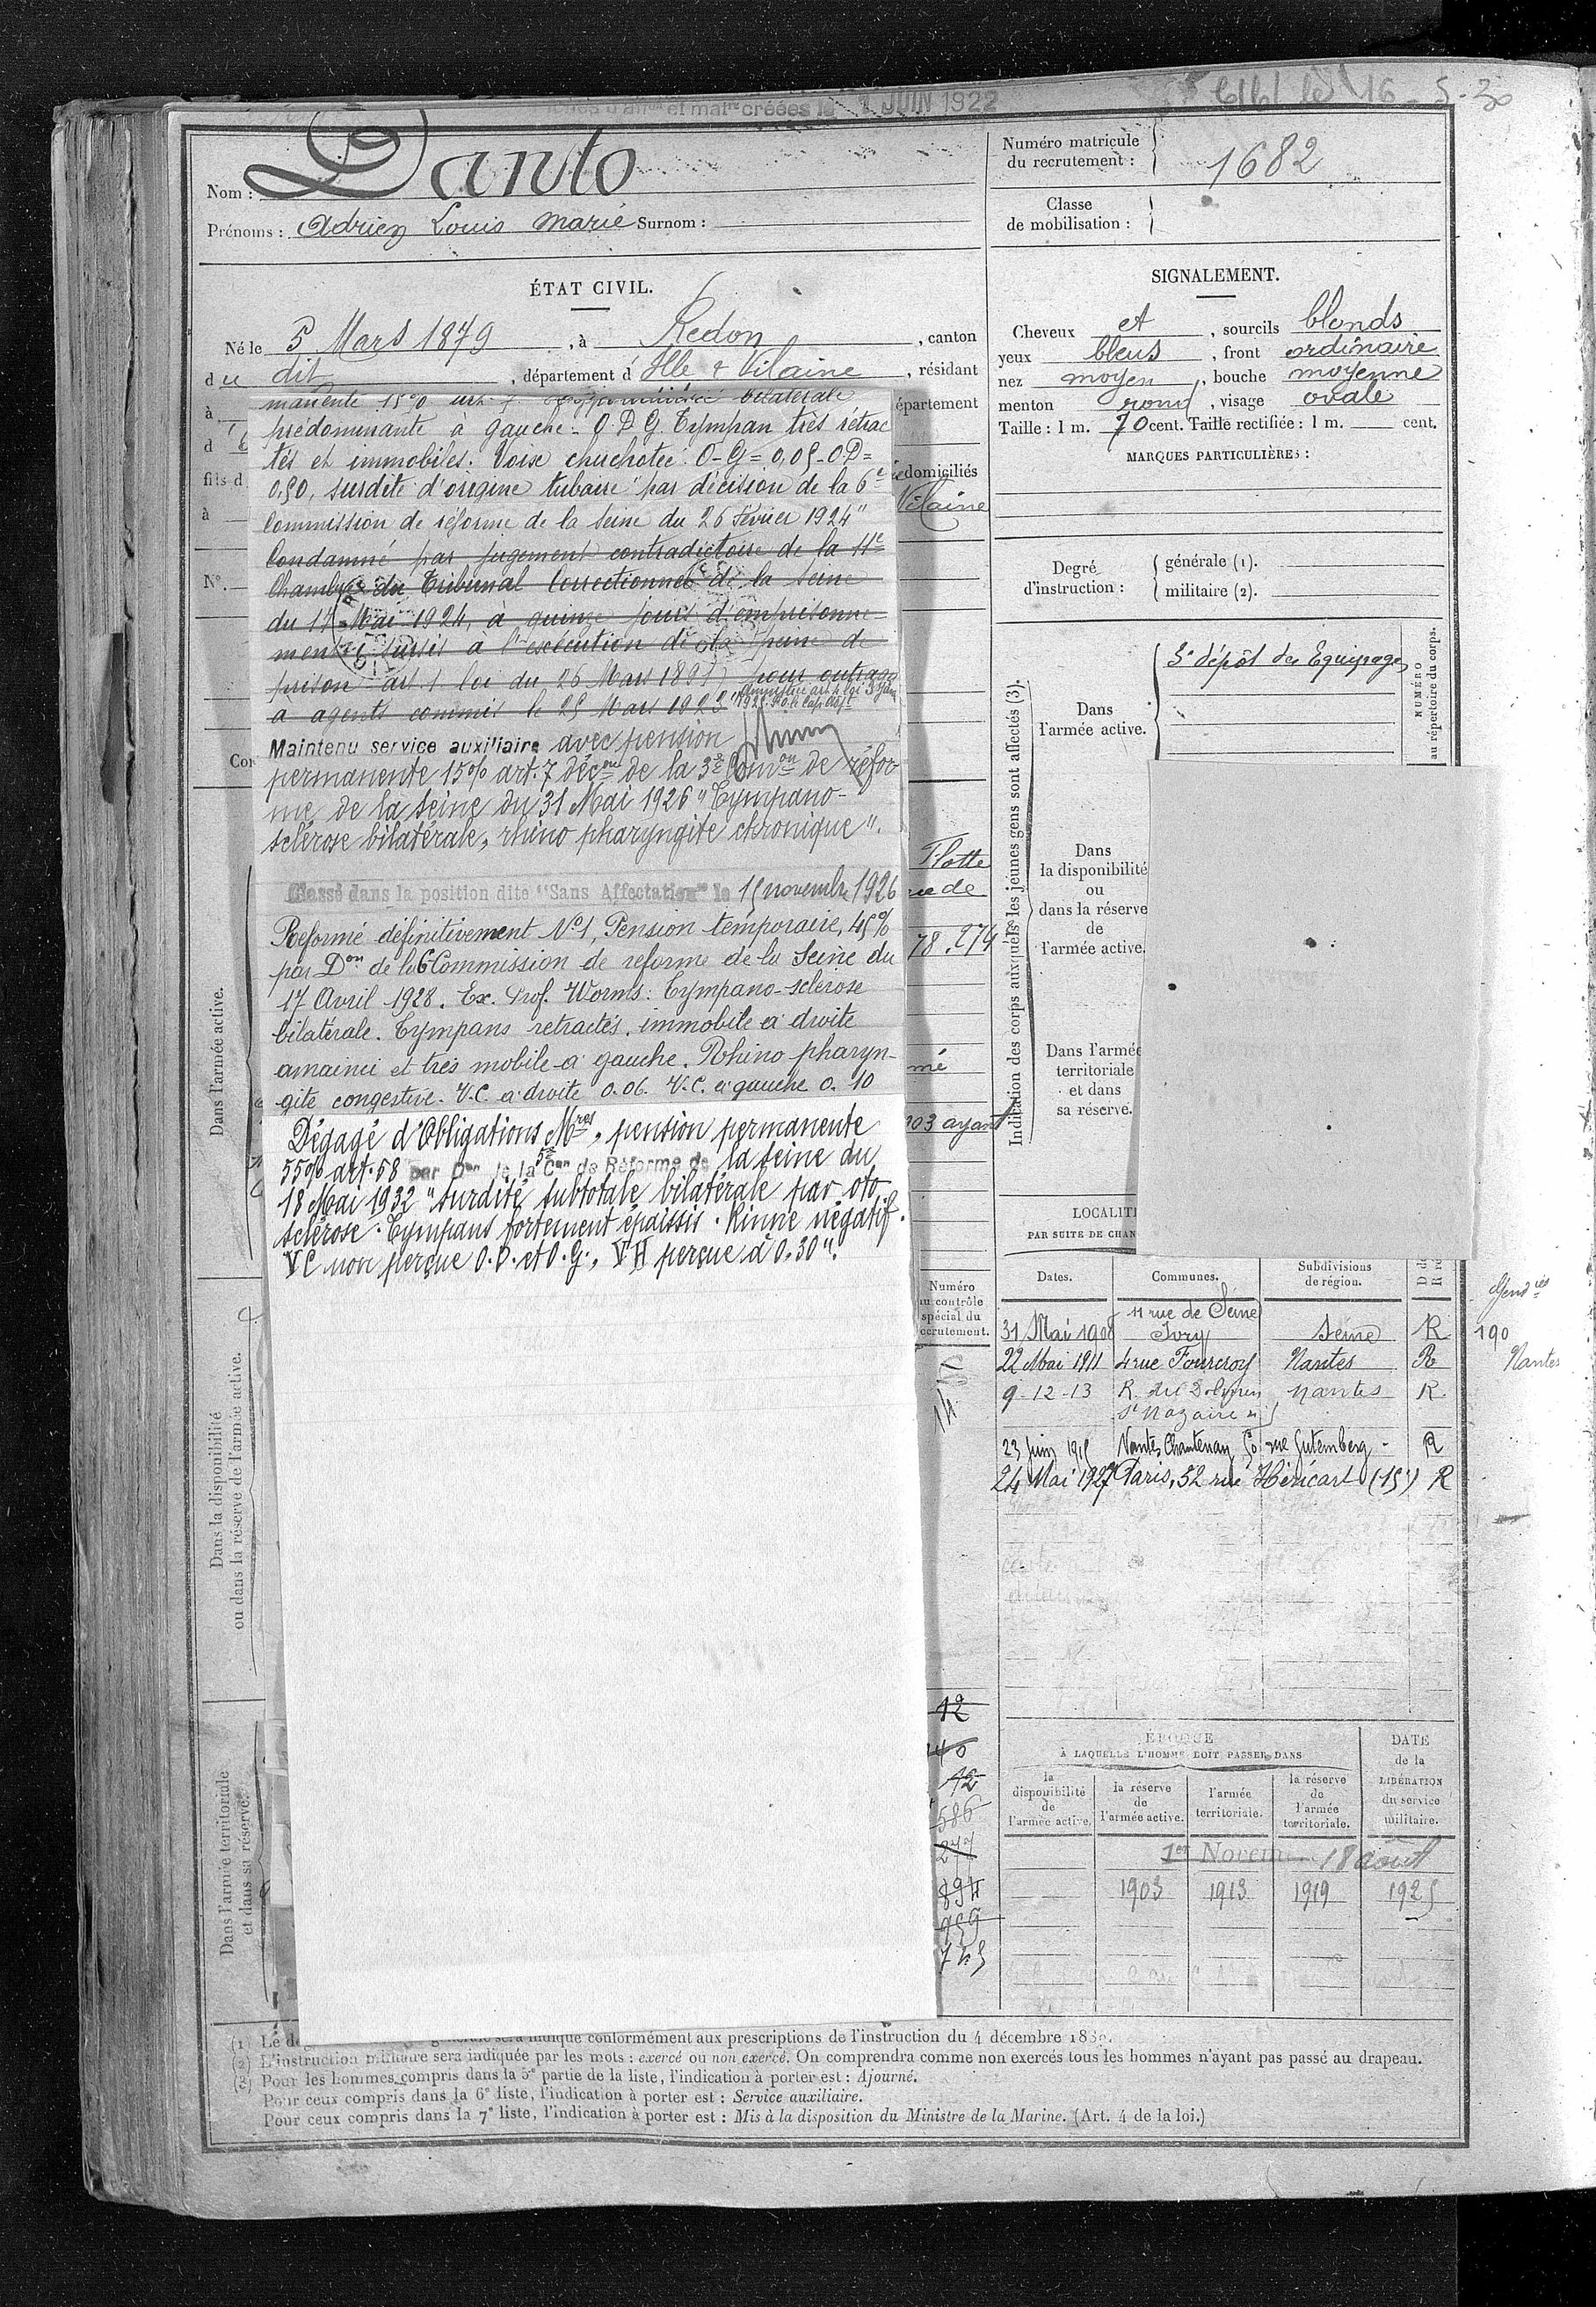 et mat^re créées le 1 JUIN 1922
16 - 5 - 30
Nom : Danto
Prénoms : Adrien Louis Marie Surnom :
Numéro matricule
du recrutement : 1682
Classe
de mobilisation :
ÉTAT CIVIL.
Né le 5 Mars 1879, à Redon, canton
du dit, département d'Ille & Vilaine, résidant
à
département
d
fils d
domiciliés
à
Vilaine
N°.
SIGNALEMENT.
Cheveux et, sourcils blonds
yeux bleus, front ordinaire
nez moyen, bouche moyenne
menton rond, visage ovale
Taille : 1 m. 70 cent. Taille rectifiée : 1 m. cent.
MARQUES PARTICULIÈRES :
Degré
d'instruction :
générale (1).
militaire (2).
manente 15% art. 7. bilatérale
prédominante à gauche - O.D.G. Tympan très rétrac
tés et immobiles. Voix chuchotée. O-G = 0,05 - O.D =
0,50, surdité d'origine tubaire" par décision de la 6e
Commission de réforme de la Seine du 26 Février 1924"
Condamné par jugement contradictoire de la 11e
Chambre du Tribunal Correctionnel de la Seine
du 17 Mai 1924, à quinze jours d'emprisonne
ment sursis à l'exécution de la peine de
prison art 1 loi du 26 Mars 1891) pour outrage
à agents commis le 25 Mars 1923"
Maintenu service auxiliaire avec pension
permanente 15% art. 7 déc^on de la 3e Com^on de réfor
me de la Seine du 31 Mai 1926 "Tympano-
sclérose bilatérale, rhino pharyngite chronique".
Classé dans la position dite "Sans Affectation" le 15 novembre 1926
Réformé définitivement N°1, Pension temporaire, 45%
par D^on de la 6 Commission de réforme de la Seine du
17 Avril 1928. Ex. Prof. Worms : Tympano-sclérose
bilatérale. Tympans retractés, immobile à droite
amainci et très mobile à gauche. Rhino pharyn-
gite congestive. V.C. à droite 0.06. V.C. à gauche 0.10
Dégagé d'Obligations M^res, pension permanente
55% art. 58 par D^on de la 5e C^on de Réforme de la Seine du
18 Mai 1932 "Surdité subtotale bilatérale par oto
sclérose. Tympans fortement épaissis. Rinne négatif.
VC non perçue O.D. et O.G., VH perçue à 0.30".
Flotte
78.274
mé
03 ayant
Dans l'armée active.
Dans la disponibilité
ou dans la réserve de l'armée active.
Dans l'armée territoriale
et dans sa réserve.
Indication des corps auxquels les jeunes gens sont affectés (3).
Dans
l'armée active.
3e dépôt des Equipages
NUMÉRO
au répertoire du corps.
Dans
la disponibilité
ou
dans la réserve
de
l'armée active.
Dans l'armée
territoriale
et dans
sa réserve.
LOCALITÉ
PAR SUITE DE CHAN
Numéro
au contrôle
spécial du
recrutement.
Dates. Communes. Subdivisions
de région.
31 Mai 1908 11 rue de Seine Ivry Seine R
22 Mai 1911 4 rue Fourcroy Nantes R
9-12-13 R. du Dolmen St Nazaire Nantes R
23 Juin 1915 Nantes Chantenay, 50 rue Gutemberg - R
24 Mai 1927 Paris, 52 rue Héricart (15e) R
190
Nantes
12
40
12
586
277
894
959
745
ÉPOQUE
À LAQUELLE L'HOMME DOIT PASSER DANS
DATE
de la
LIBÉRATION
du service
militaire.
la
disponibilité
de
l'armée active.
la réserve
de
l'armée active.
l'armée
territoriale.
la réserve
de
l'armée
territoriale.
1er Novem 18 août
1903 1913 1919 1925
(1) Le de générale sera indiqué conformément aux prescriptions de l'instruction du 4 décembre 1889.
(2) L'instruction militaire sera indiquée par les mots : exercé ou non exercé. On comprendra comme non exercés tous les hommes n'ayant pas passé au drapeau.
(3) Pour les hommes compris dans la 5e partie de la liste, l'indication à porter est : Ajourné.
Pour ceux compris dans la 6e liste, l'indication à porter est : Service auxiliaire.
Pour ceux compris dans la 7e liste, l'indication à porter est : Mis à la disposition du Ministre de la Marine. (Art. 4 de la loi.)